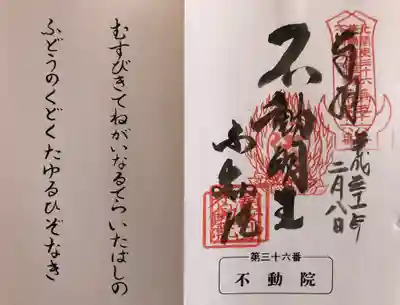 奉拝
平成三十一年
二月八日
不動明王
不動院
第三十六番
不動院
むすびきてねがいなるでら いたばしの
ふどうのくどく たゆるひぞなき